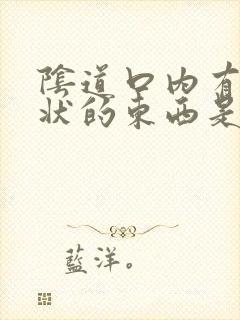 陰道口內有
狀的東西是
藍洋。